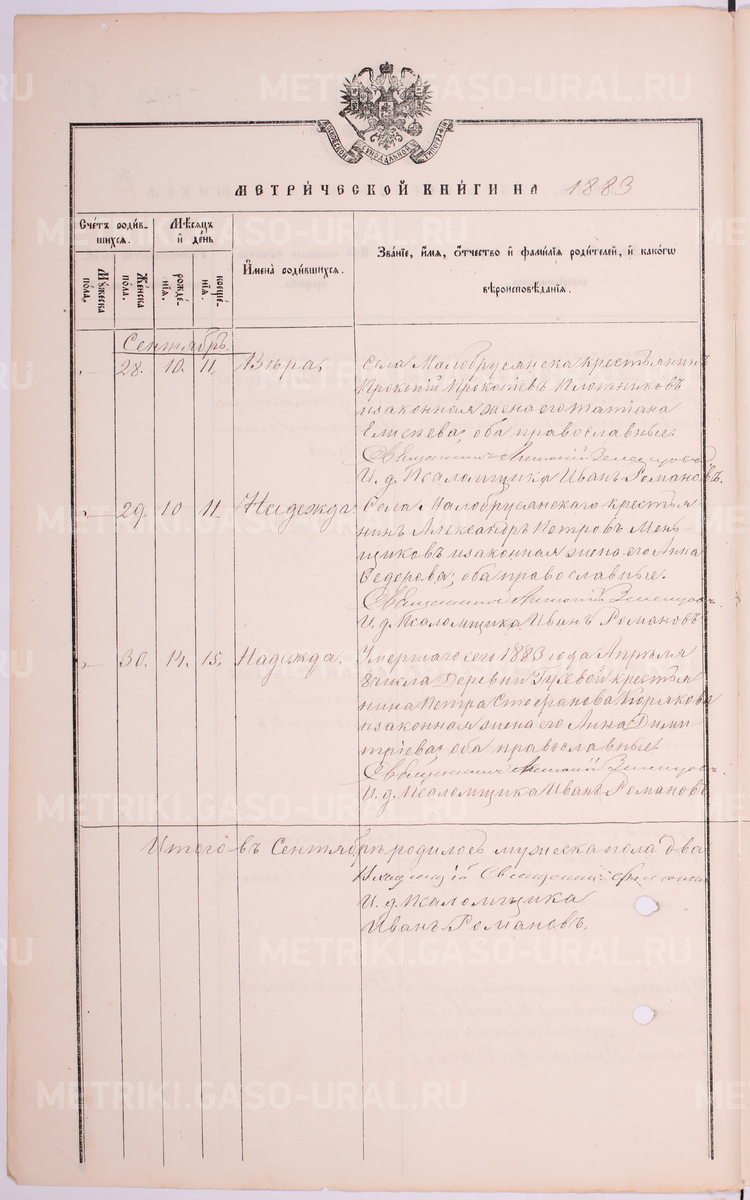 МОСКОВСКОЙ СѴНОДАЛЬНОЙ ТИПОГРАФІИ
МЕТРИ́ЧЕСКОЙ КНИ́ГИ НА 1883
Сче́тъ роди́в-
шихся.
Мѣ́сяцъ
и҆ де́нь
И҆мена̀ роди́вшихся.
Зва́нїе, и҆́мя, ѻ҆́тчество и҆ фами́лїя роди́телей, и҆ како́гѡ
вѣроисповѣ́данїя.
Мꙋ́жеска
по́ла.
Же́нска
по́ла.
рожде́-
нїя.
креще́-
нїя.
Сентябрь.
„— 28. 10. 11. Вѣра, Села Малобрусянска крестьянинъ
Прокопій Прокопіевъ Плотниковъ
и законная жена его Татіана
Елисѣева; оба православные.
Священникъ
И. д. Псаломщика Иванъ Романовъ.
„— 29. 10 11. Надежда Села Малобрусянскаго крестья
нинъ Александръ Петровъ Мень-
щиковъ и законная жена его Анна
Ѳедорова; оба православные.
Священникъ
И. д. Псаломщика Иванъ Романовъ
„— 30. 14. 15. Надежда. Умершаго сего 1883 года Апрѣля
числа Деревни крестья
нина Петра Стефанова Корякова
и законная жена его Анна Дими-
тріева; оба православные.
Священникъ
И. д. Псаломщика Иванъ Романовъ
Итого въ Сентябрѣ родилось мужеска пола два
Священникъ
И. д. Псаломщика
Иванъ Романовъ.
METRIKI.GASO-URAL.RU